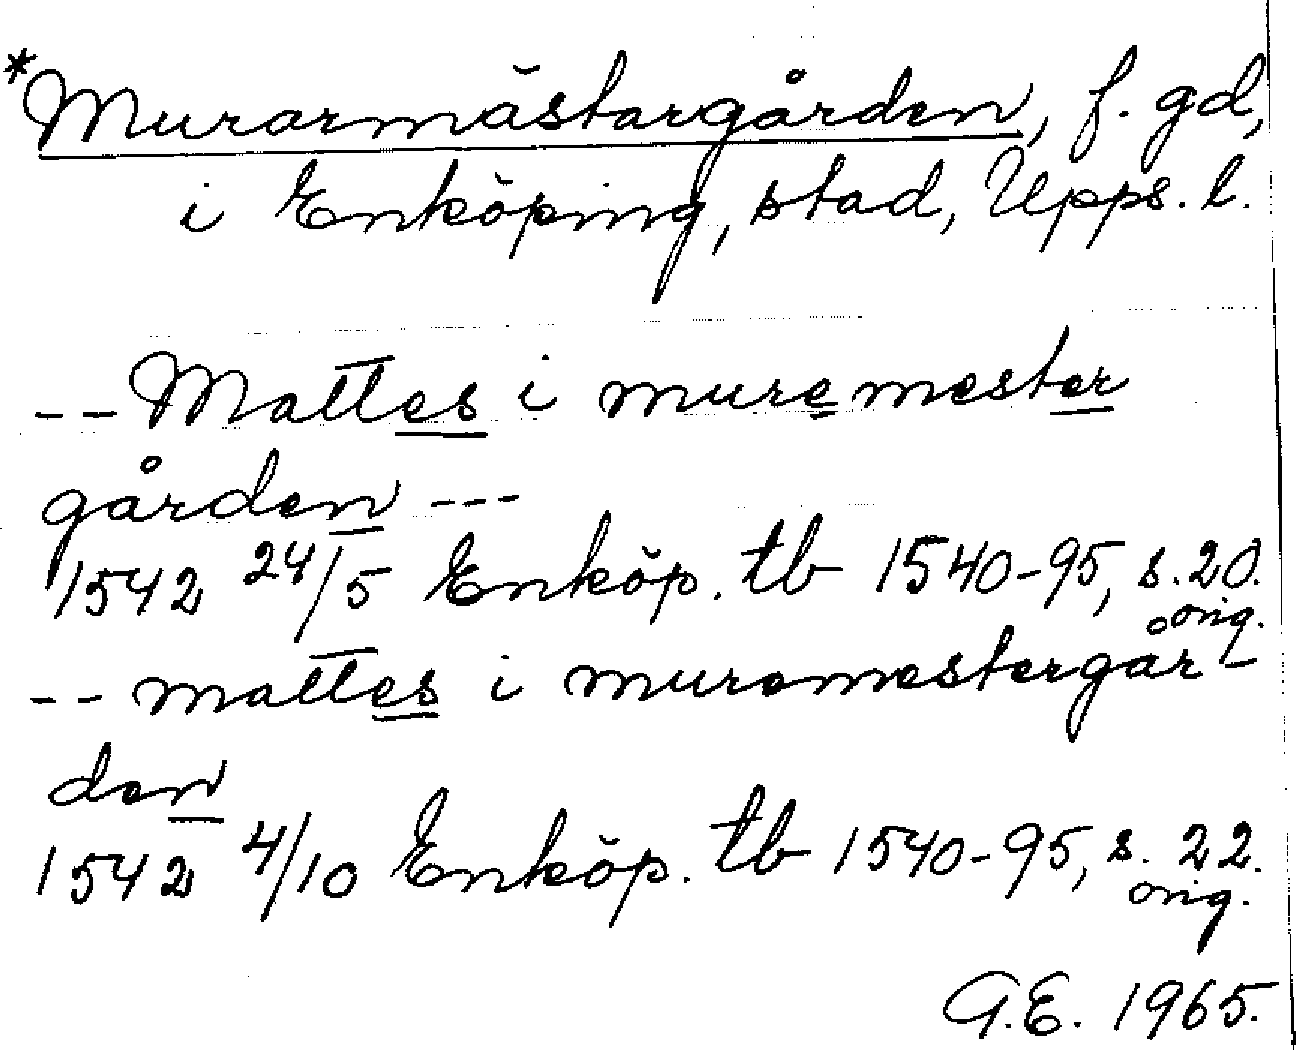 *Murarmästargården, f. gd,
i Enköping, stad, Upps. l.
-- Mattes i muremester
gården ---
1542 24/5 Enköp. tb 1540-95, s. 20.
orig.
-- mattes i muremestergår-
den
1542 4/10 Enköp. tb 1540-95, s. 22.
orig.
G.E. 1965.